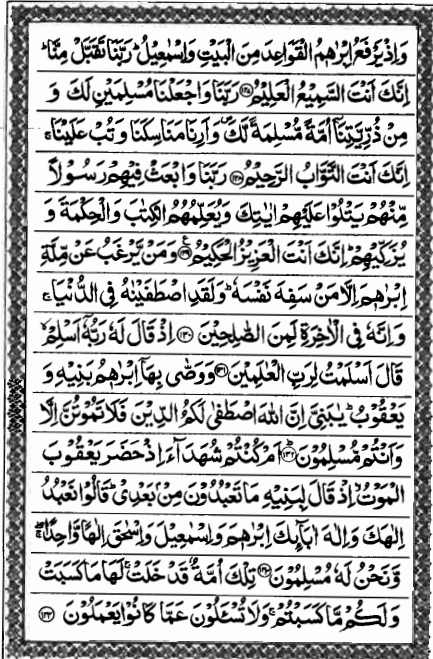 وَاِذْ يَرْفَعُ اِبْرٰهٖمُ الْقَوَاعِدَ مِنَ الْبَيْتِ وَاِسْمٰعِيْلُ ؕ رَبَّنَا تَقَبَّلْ مِنَّا ؕ
اِنَّكَ اَنْتَ السَّمِيْعُ الْعَلِيْمُ ﴿۱۲۷﴾ رَبَّنَا وَاجْعَلْنَا مُسْلِمَيْنِ لَكَ وَ
مِنْ ذُرِّيَّتِنَآ اُمَّةً مُّسْلِمَةً لَّكَ ۪ وَاَرِنَا مَنَاسِكَنَا وَتُبْ عَلَيْنَا ۚ
اِنَّكَ اَنْتَ التَّوَّابُ الرَّحِيْمُ ﴿۱۲۸﴾ رَبَّنَا وَابْعَثْ فِيْهِمْ رَسُوْلًا
مِّنْهُمْ يَتْلُوْا عَلَيْهِمْ اٰيٰتِكَ وَيُعَلِّمُهُمُ الْكِتٰبَ وَالْحِكْمَةَ وَ
يُزَكِّيْهِمْ ؕ اِنَّكَ اَنْتَ الْعَزِيْزُ الْحَكِيْمُ ﴿۱۲۹﴾ ع وَمَنْ يَّرْغَبُ عَنْ مِّلَّةِ
اِبْرٰهٖمَ اِلَّا مَنْ سَفِهَ نَفْسَهٗ ؕ وَلَقَدِ اصْطَفَيْنٰهُ فِي الدُّنْيَا ۚ
وَاِنَّهٗ فِي الْاٰخِرَةِ لَمِنَ الصّٰلِحِيْنَ ﴿۱۳۰﴾ اِذْ قَالَ لَهٗ رَبُّهٗٓ اَسْلِمْ ۙ
قَالَ اَسْلَمْتُ لِرَبِّ الْعٰلَمِيْنَ ﴿۱۳۱﴾ وَوَصّٰى بِهَآ اِبْرٰهٖمُ بَنِيْهِ وَ
يَعْقُوْبُ ؕ يٰبَنِيَّ اِنَّ اللّٰهَ اصْطَفٰى لَكُمُ الدِّيْنَ فَلَا تَمُوْتُنَّ اِلَّا
وَاَنْتُمْ مُّسْلِمُوْنَ ﴿۱۳۲﴾ ؕ اَمْ كُنْتُمْ شُهَدَآءَ اِذْ حَضَرَ يَعْقُوْبَ
الْمَوْتُ ۙ اِذْ قَالَ لِبَنِيْهِ مَا تَعْبُدُوْنَ مِنْۢ بَعْدِيْ ؕ قَالُوْا نَعْبُدُ
اِلٰهَكَ وَاِلٰهَ اٰبَآئِكَ اِبْرٰهٖمَ وَاِسْمٰعِيْلَ وَاِسْحٰقَ اِلٰهًا وَّاحِدًا ۖۚ
وَّنَحْنُ لَهٗ مُسْلِمُوْنَ ﴿۱۳۳﴾ تِلْكَ اُمَّةٌ قَدْ خَلَتْ ۚ لَهَا مَا كَسَبَتْ
وَلَكُمْ مَّا كَسَبْتُمْ ۚ وَلَا تُسْـَٔلُوْنَ عَمَّا كَانُوْا يَعْمَلُوْنَ ﴿۱۳۴﴾